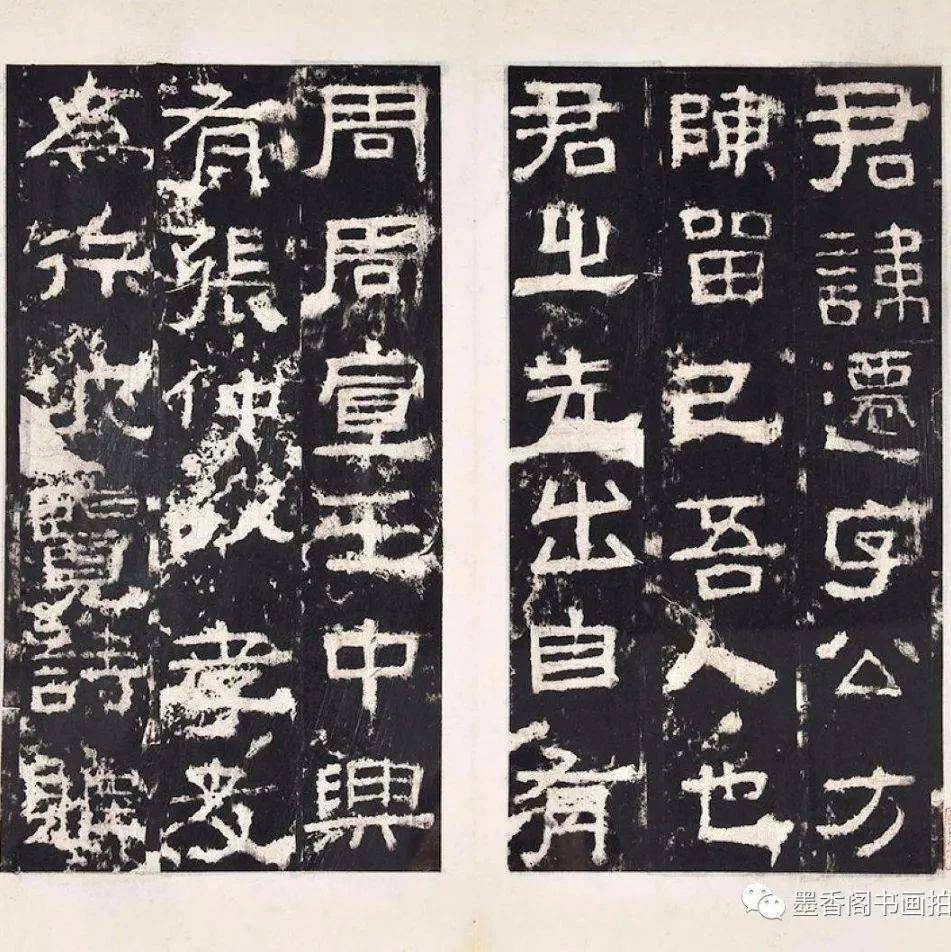 君諱遷字公方
陳留己吾人也
君之先出自有
周周宣王中興
有張仲以孝友
為行披覽詩雅
墨香阁书画拍